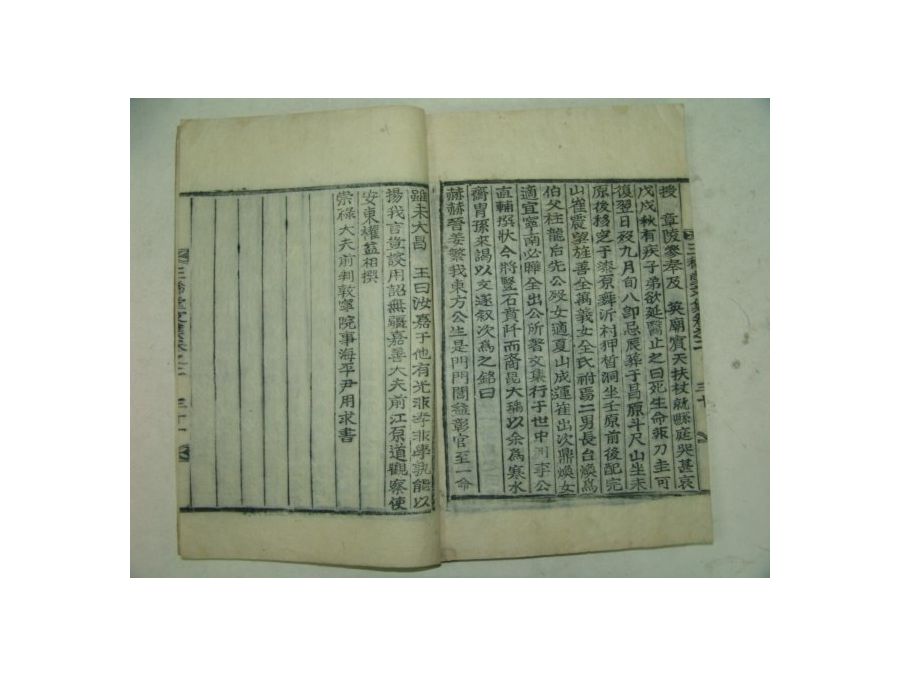 授 章陵參奉及 英廟賓天扶杖就縣庭哭甚哀
戊戌秋有疾子弟欲延醫止之曰死生命也刀圭可
復翌日歿九月旬八卽忌辰葬于昌原斗尺山坐未
原後移窆于漆原舞沂村狎皙洞坐壬原前後配完
山崔震望旌善全萬義女全氏祔焉二男長台煥爲
伯父柱龍后先公歿女適夏山成運崔出次鼎煥女
適宜寧南必曄全出公所著文集行于世中李公
直輔撰狀今將竪石賁阡而裔昆大瑀以余爲寒水
齋胄孫來謁以文遂叙次爲之銘曰
赫赫晉姜繁我東方公生是門門閭益彰官至一命
三十
雖未大昌 王曰汝嘉于他有光非孝非學孰能以
揚我言豈諛用詔無疆嘉善大夫前江原道觀察使
安東權益相撰
崇祿大夫前判敦寧院事海平尹用求書
三十一